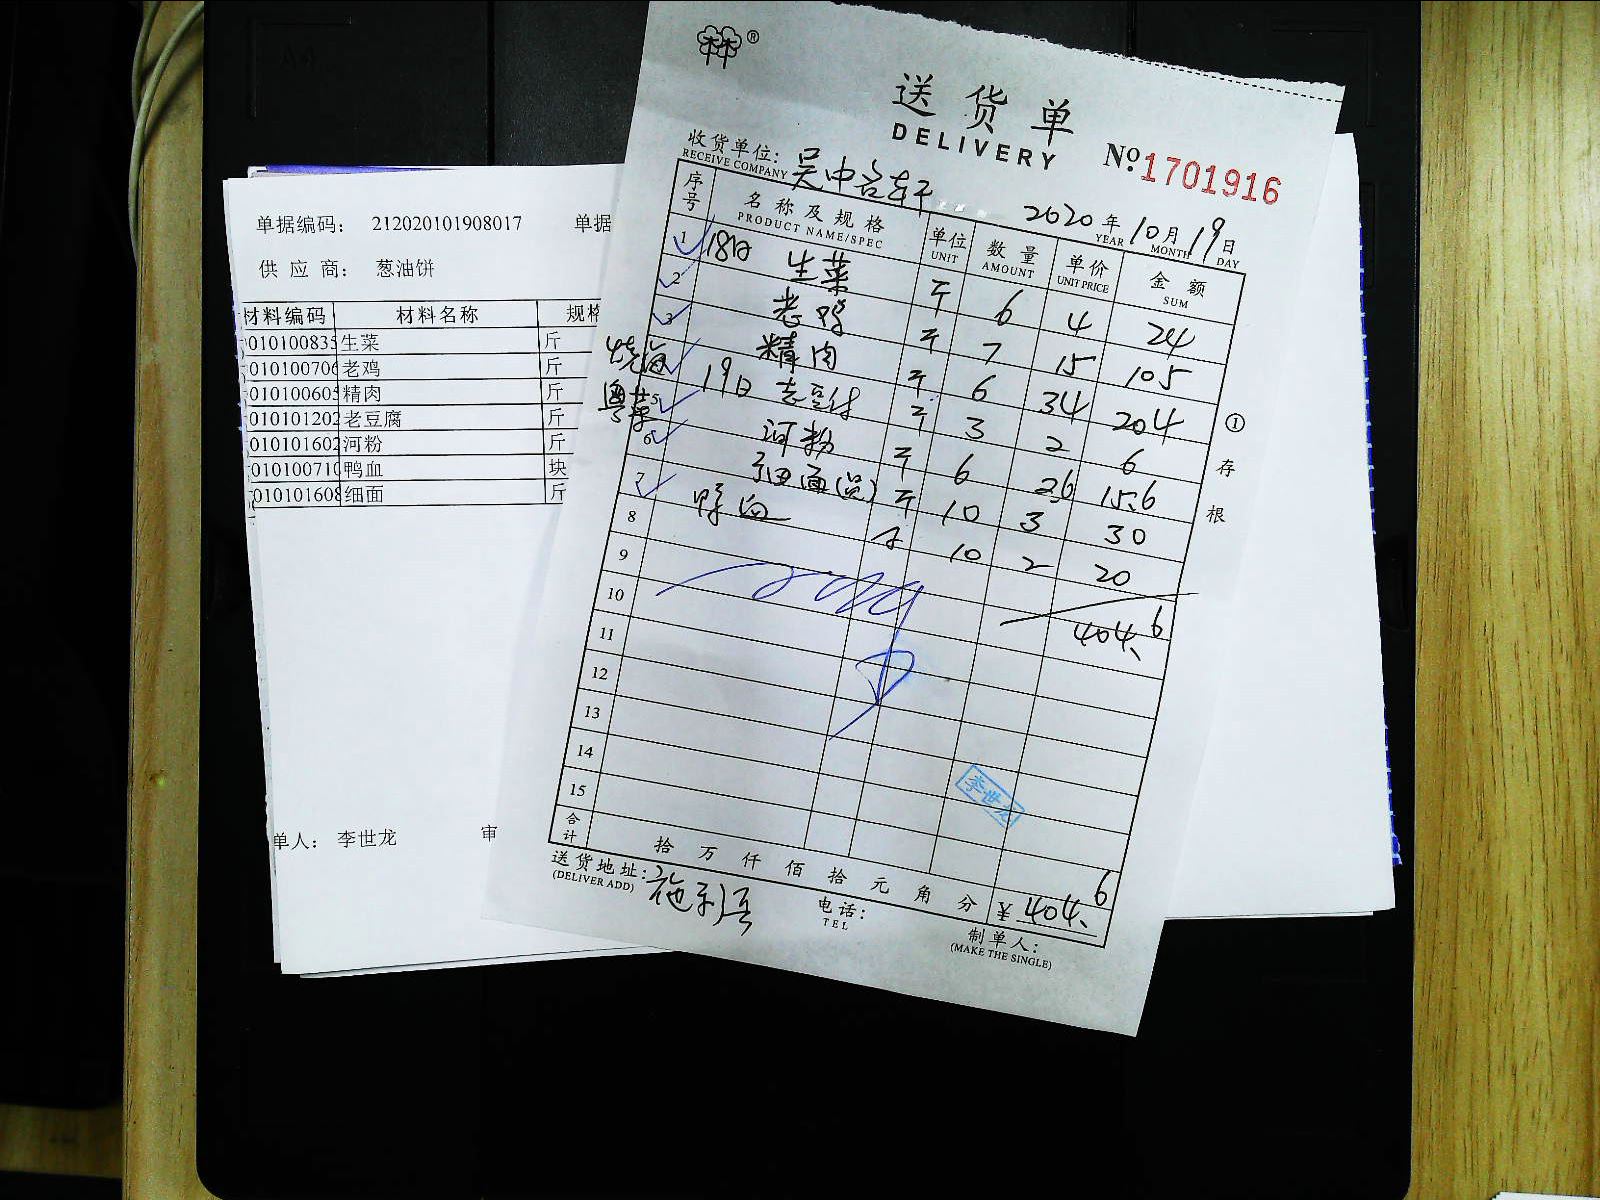 送货单
DELIVERY
№1701916
收货单位:
RECEIVE COMPANY
2020年10月19日
YEAR MONTH DAY
序号 名称及规格 单位 数量 单价 金额
PRODUCT NAME/SPEC UNIT AMOUNT UNIT PRICE SUM
1 18日 生菜 斤 6 4 24
2 老鸡 斤 7 15 105
3 精肉 斤 6 34 204
19日 老豆付 斤 3 2 6
5 河粉 斤 6 2.6 15.6
6 细面(白) 斤 10 3 30
7 鸭血 10 2 20
8 404.6
9
10
11
12
13
14
15
合计 拾 万 仟 佰 拾 元 角 分 ¥404.6
①存根
烧海
粤菜
李世龙
送货地址:
(DELIVER ADD)
电话:
TEL
制单人:
(MAKE THE SINGLE)
单据编码: 212020101908017 单据
供应商: 葱油饼
材料编码 材料名称 规格
010100835 生菜 斤
010100706 老鸡 斤
010100605 精肉 斤
010101202 老豆腐 斤
010101602 河粉 斤
010100710 鸭血 块
010101608 细面 斤
单人: 李世龙 审